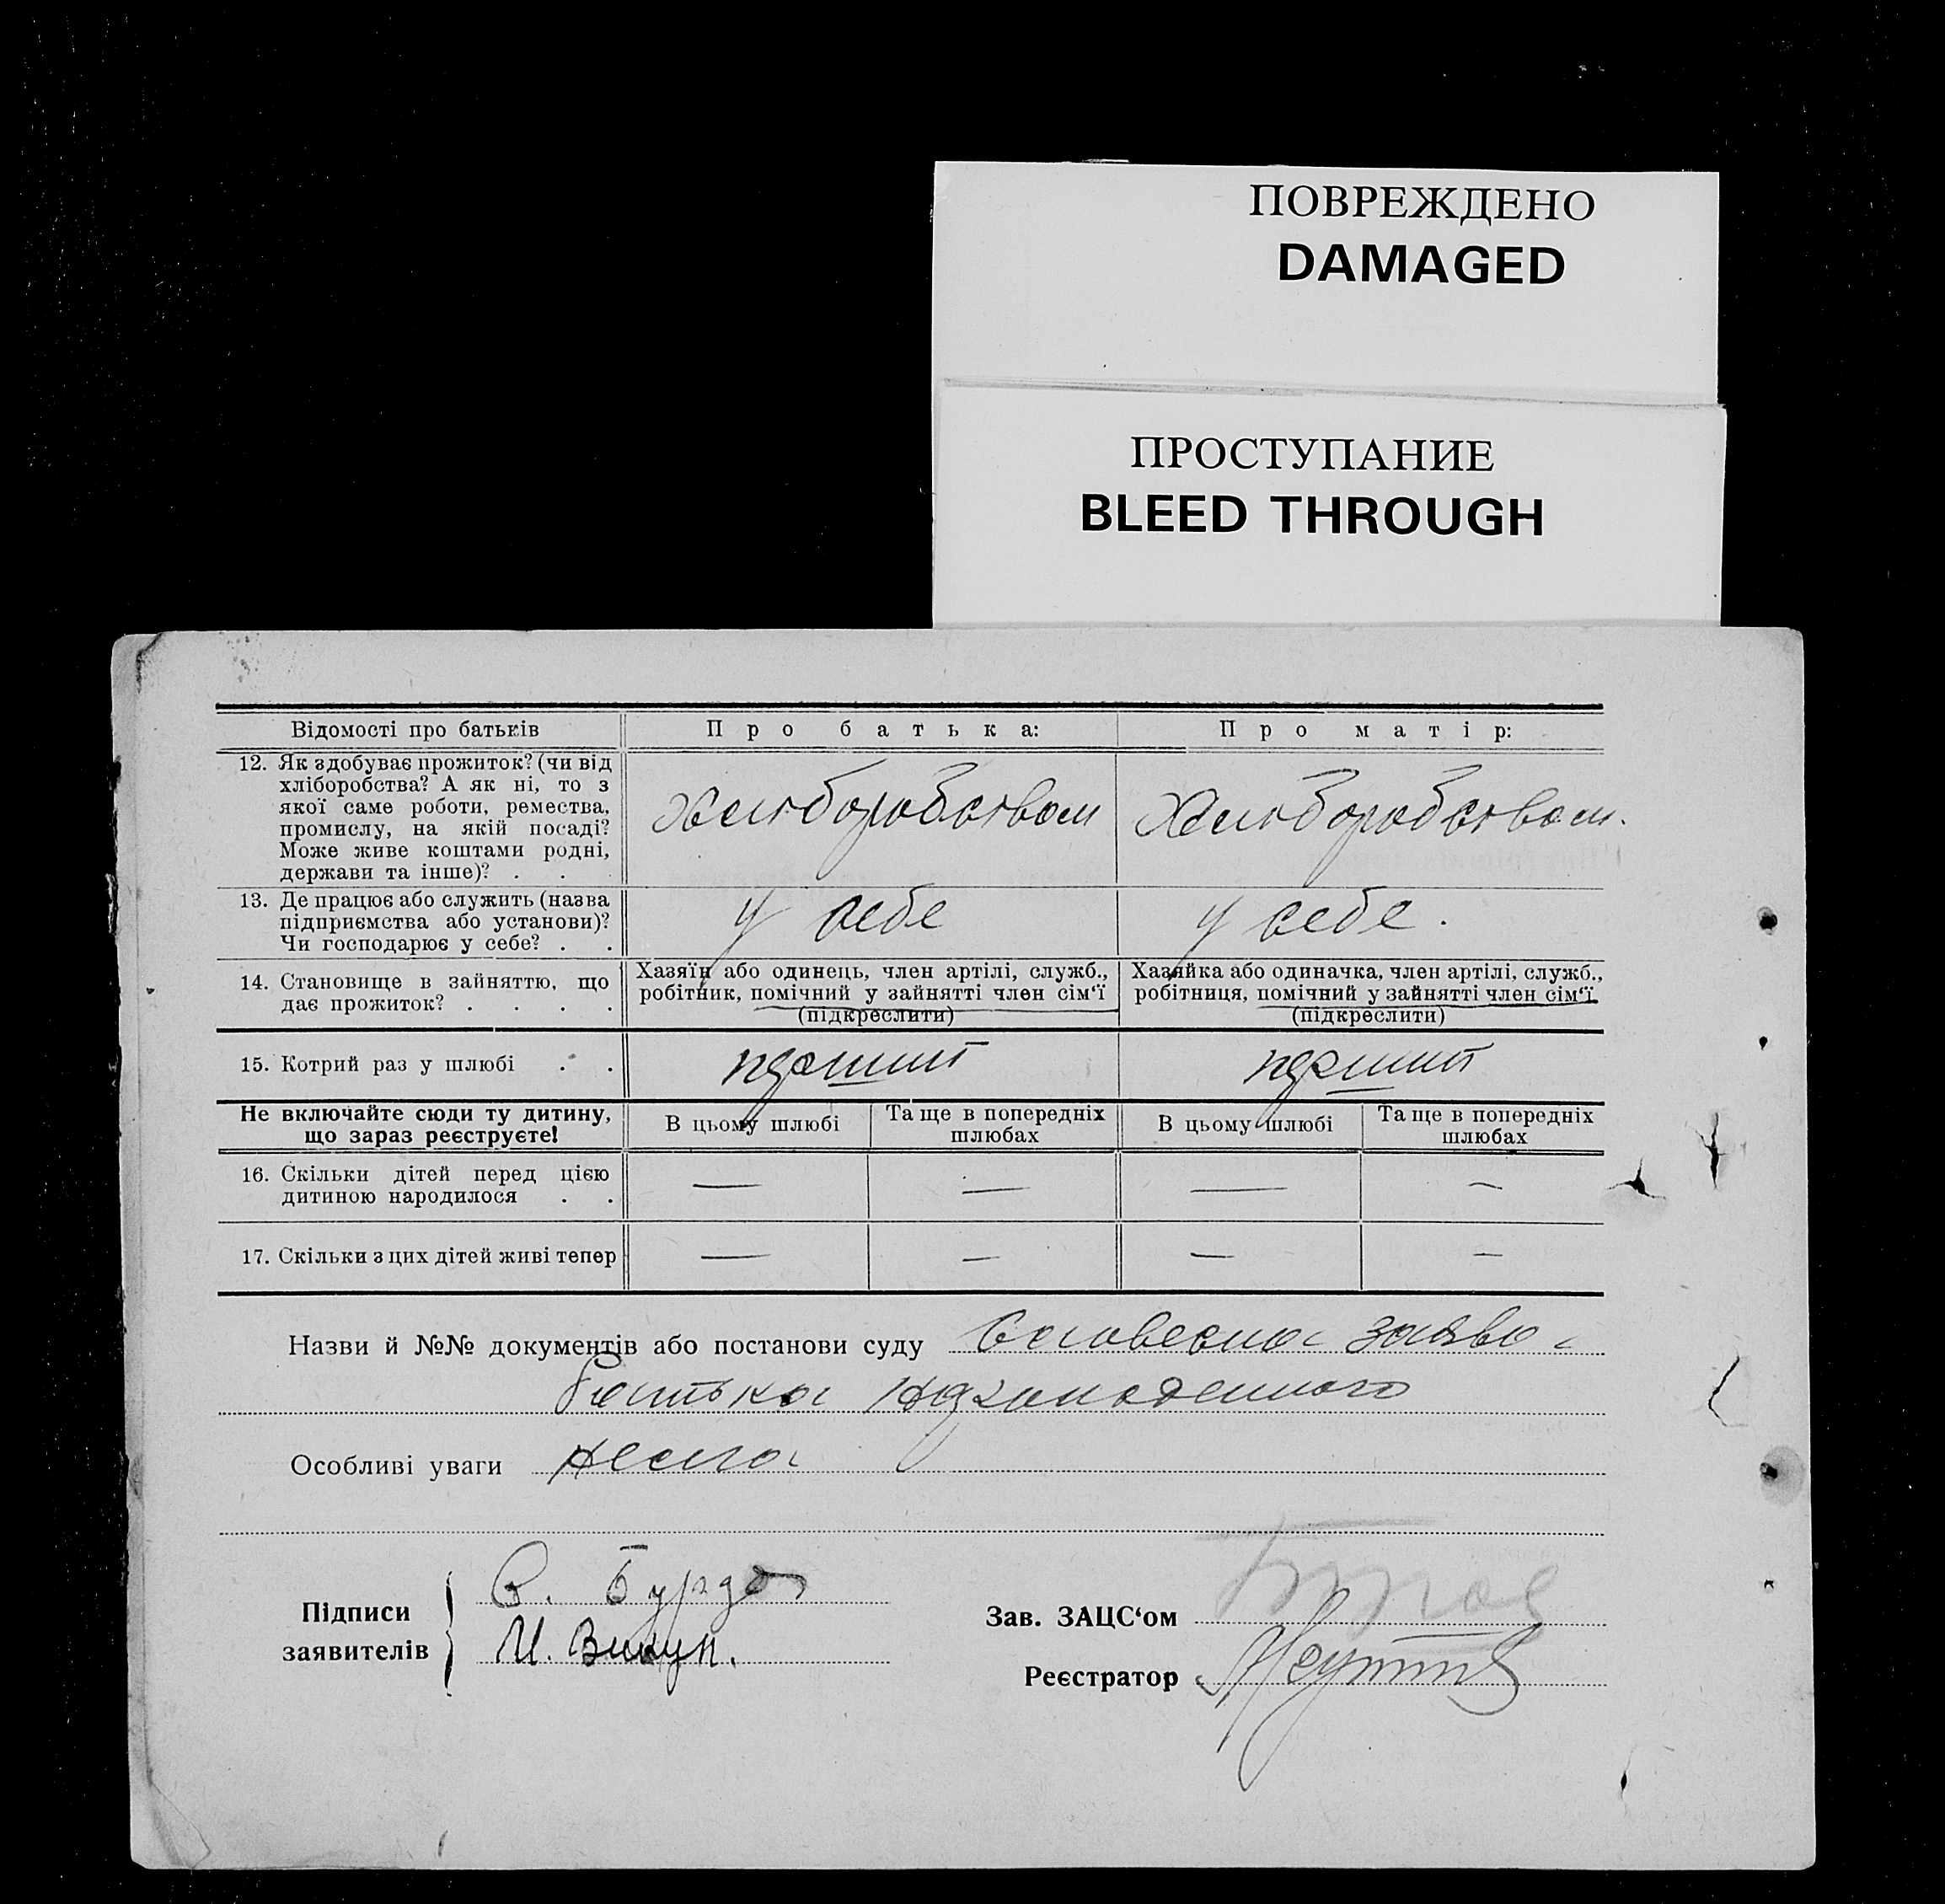 ПОВРЕЖДЕНО
DAMAGED
ПРОСТУПАНИЕ
BLEED THROUGH
Відомості про батьків Про батька: Про матір:
12. Як здобуває прожиток? (чи від
хліборобства? А як ні, то з
якої саме роботи, ремества,
промислу, на якій посаді?
Може живе коштами родні,
держави та інше)? . .
Хліборобством Хліборобством.
13. Де працює або служить (назва
підприємства або установи)?
Чи господарює у себе? . .
у себе у себе.
14. Становище в зайняттю, що
дає прожиток? . . . .
Хазяїн або одинець, член артілі, служб.,
робітник, помічний у зайнятті член сім'ї
(підкреслити)
Хазяйка або одиначка, член артілі, служб.,
робітниця, помічний у зайнятті член сім'ї
(підкреслити)
15. Котрий раз у шлюбі . .
перший перший
Не включайте сюди ту дитину,
що зараз реєструєте!
В цьому шлюбі Та ще в попередніх
шлюбах
В цьому шлюбі Та ще в попередніх
шлюбах
16. Скільки дітей перед цією
дитиною народилося . .
— — — —
17. Скільки з цих дітей живі тепер
— — — —
Назви й №№ документів або постанови суду Словесна заява
батька
Особливі уваги нема
Підписи
заявителів
С. Бурда
И. Викул.
Зав. ЗАЦС'ом
Реєстратор